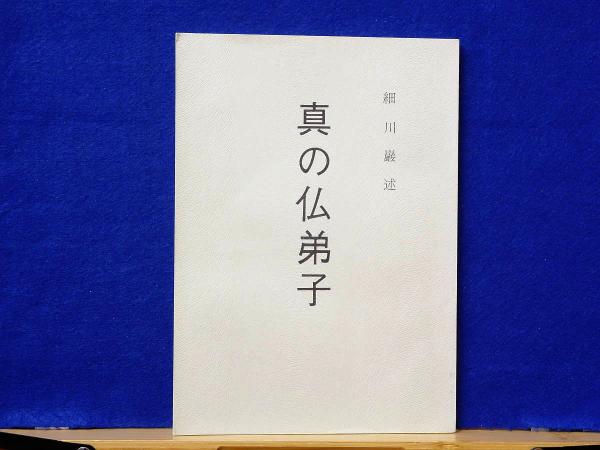 細川巌述
真の仏弟子